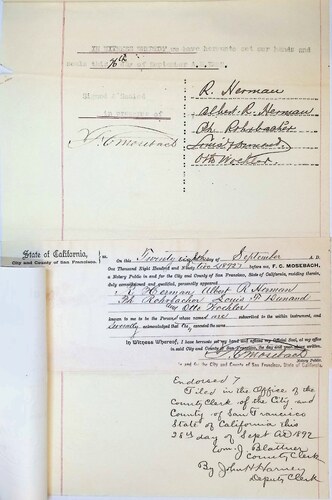 IN WITNESS WHEREOF we have hereunto set our hands and
seals this 26th day of September A.D. 1892
Signed & Sealed
in presence of
F. C. Mosebach
R. Herman
Albert R. Herman
Ph. Rohrbacher
Louis F. Dunand
Otto Wochler
State of California,
City and County of San Francisco.
ss.
On this Twenty eighth day of September A. D.
One Thousand Eight Hundred and Ninety two (1892) before me, F. C. MOSEBACH,
a Notary Public in and for the City and County of San Francisco, State of California, residing therein,
duly commissioned and qualified, personally appeared
R Herman Albert R Herman
Ph Rohrbacher Louis F Dunand
and Otto Wochler
known to me to be the Persons whose names are subscribed to the within instrument, and
severally acknowledged that they executed the same
In Witness Whereof, I have hereunto set my hand and affixed my Official Seal, at my office
in said City and County of San Francisco, the day and year above written.
F. C. Mosebach
in and for the City and County of San Francisco, State of California.
Endorsed
Filed in the Office of the
County Clerk of the City and
County of San Francisco
State of California this
28th day of Sept AD 1892
Wm. J. Blattner
County Clerk
By John H. Harney
Deputy Clerk